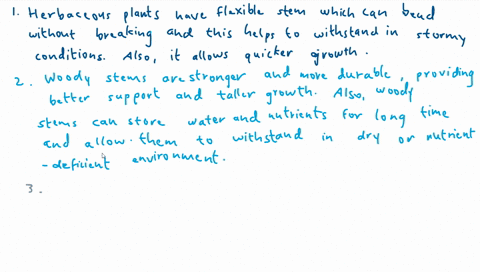 1. Herbaceous plants have flexible stem which can bend
without breaking and this helps to withstand in stormy
conditions. Also, it allows quicker growth.
2. Woody stems are stronger and more durable, providing
better support and taller growth. Also, woody
stems can store water and nutrients for long time
and allow them to withstand in dry or nutrient
-deficient environment.
3.